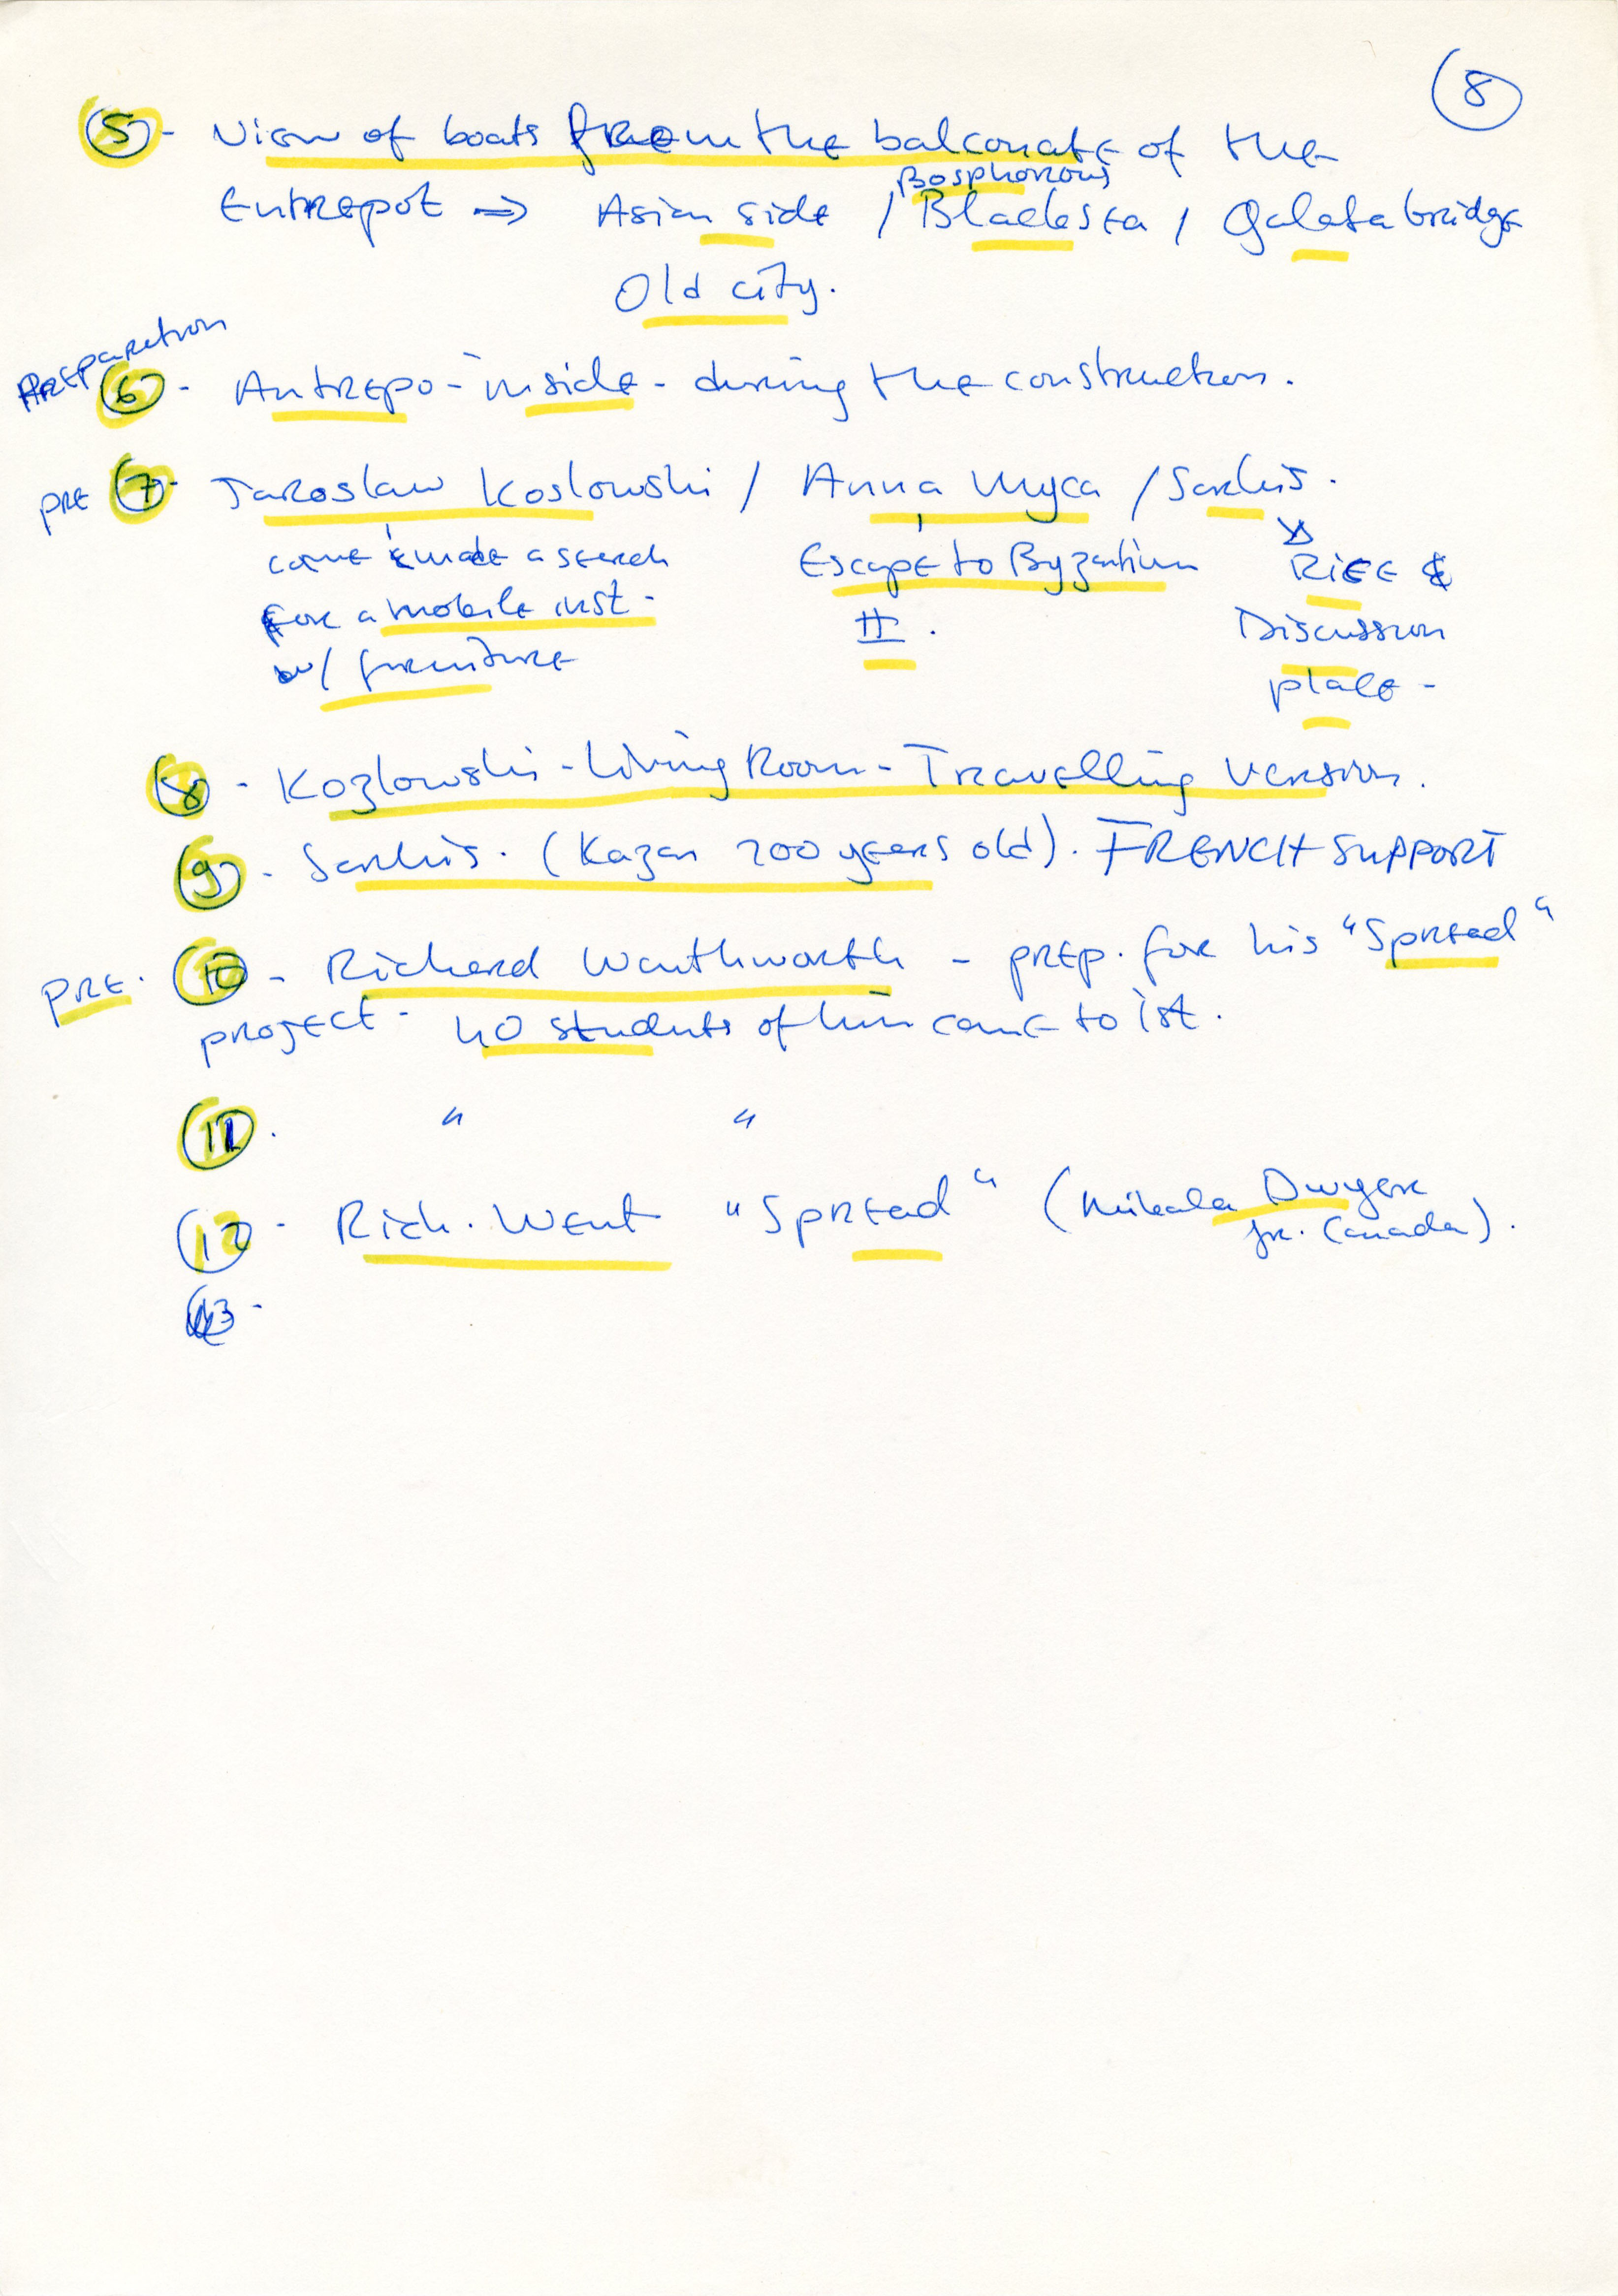 8
5 - View of boats from the balconate of the
Bosphorous
Entrepot ⇒ Asian side / Blacksea / Galata bridge
Old city.
Preparation
6 - Antrepo - inside - during the construction.
PRE 7 - Jaroslaw Koslowski / Anna Myca / Sarkis.
come & made a serch Escape to Byzantium Rice &
for a mobile inst - II . Discussion
w/ furniture place -
8 - Kozlowski - Living Room - Travelling Version.
9 - Sarkis. (Kazan 200 years old). FRENCH SUPPORT
PRE. 10 - Richard Wenthworth - prep. for his "Spread"
project - 40 students of him came to ist.
11. " "
12 - Rich. Went "Spread" (Mikala Dwyer
fr. Canada).
13 -